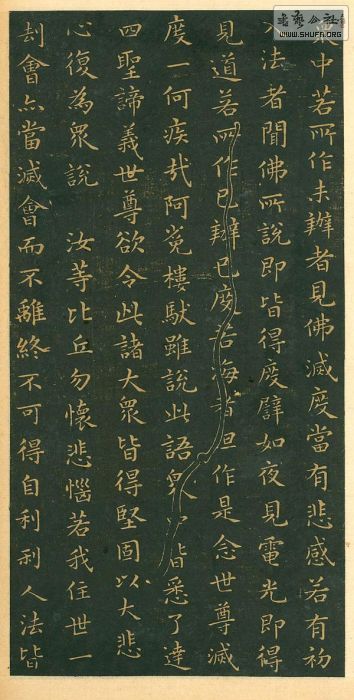 中若所作未辦者見佛滅度當有悲感若有初
法者聞佛所說即皆得度譬如夜見電光即得
見道若所作已辦已度苦海者但作是念世尊滅
度一何疾哉阿㝹樓馱雖說此語衆皆悉了達
四聖諦義世尊欲令此諸大衆皆得堅固以大悲
心復為衆說 汝等比丘勿懷悲惱若我住世一
劫會亦當滅會而不離終不可得自利利人法皆
WWW.SHUFA.ORG